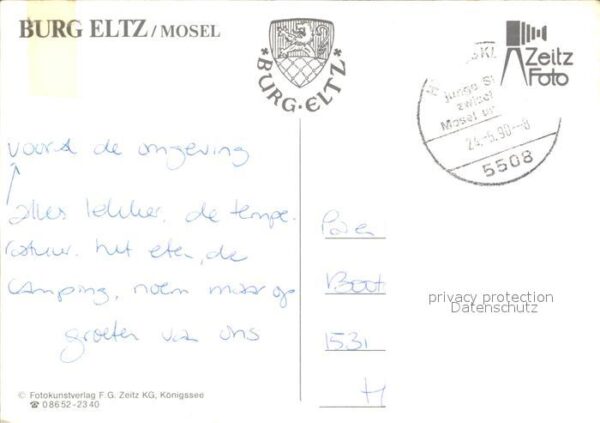 BURG ELTZ / MOSEL
BURG·ELTZ
Zeitz
Foto
Junge S
zwisch
Mosel u
24.-5.90.-8
5508
vooral de omgeving
alles lekker, de tempe-
ratuur. het eten, de
camping, noem maar op
groeten van ons
1531
H
privacy protection
Datenschutz
© Fotokunstverlag F.G. Zeitz KG, Königssee
☎ 08652-2340